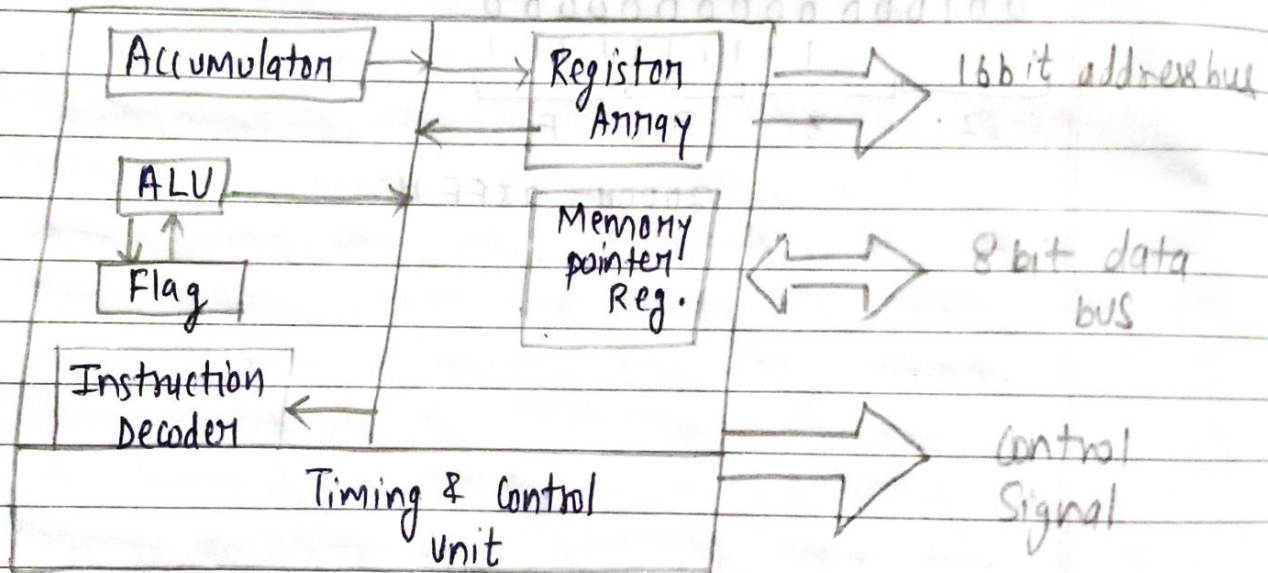 Accumulator
Register
Array
16 bit address bus
ALU
Memory
pointer
Reg.
8 bit data
bus
Flag
Instruction
Decoder
Timing & Control
Unit
Control
Signal